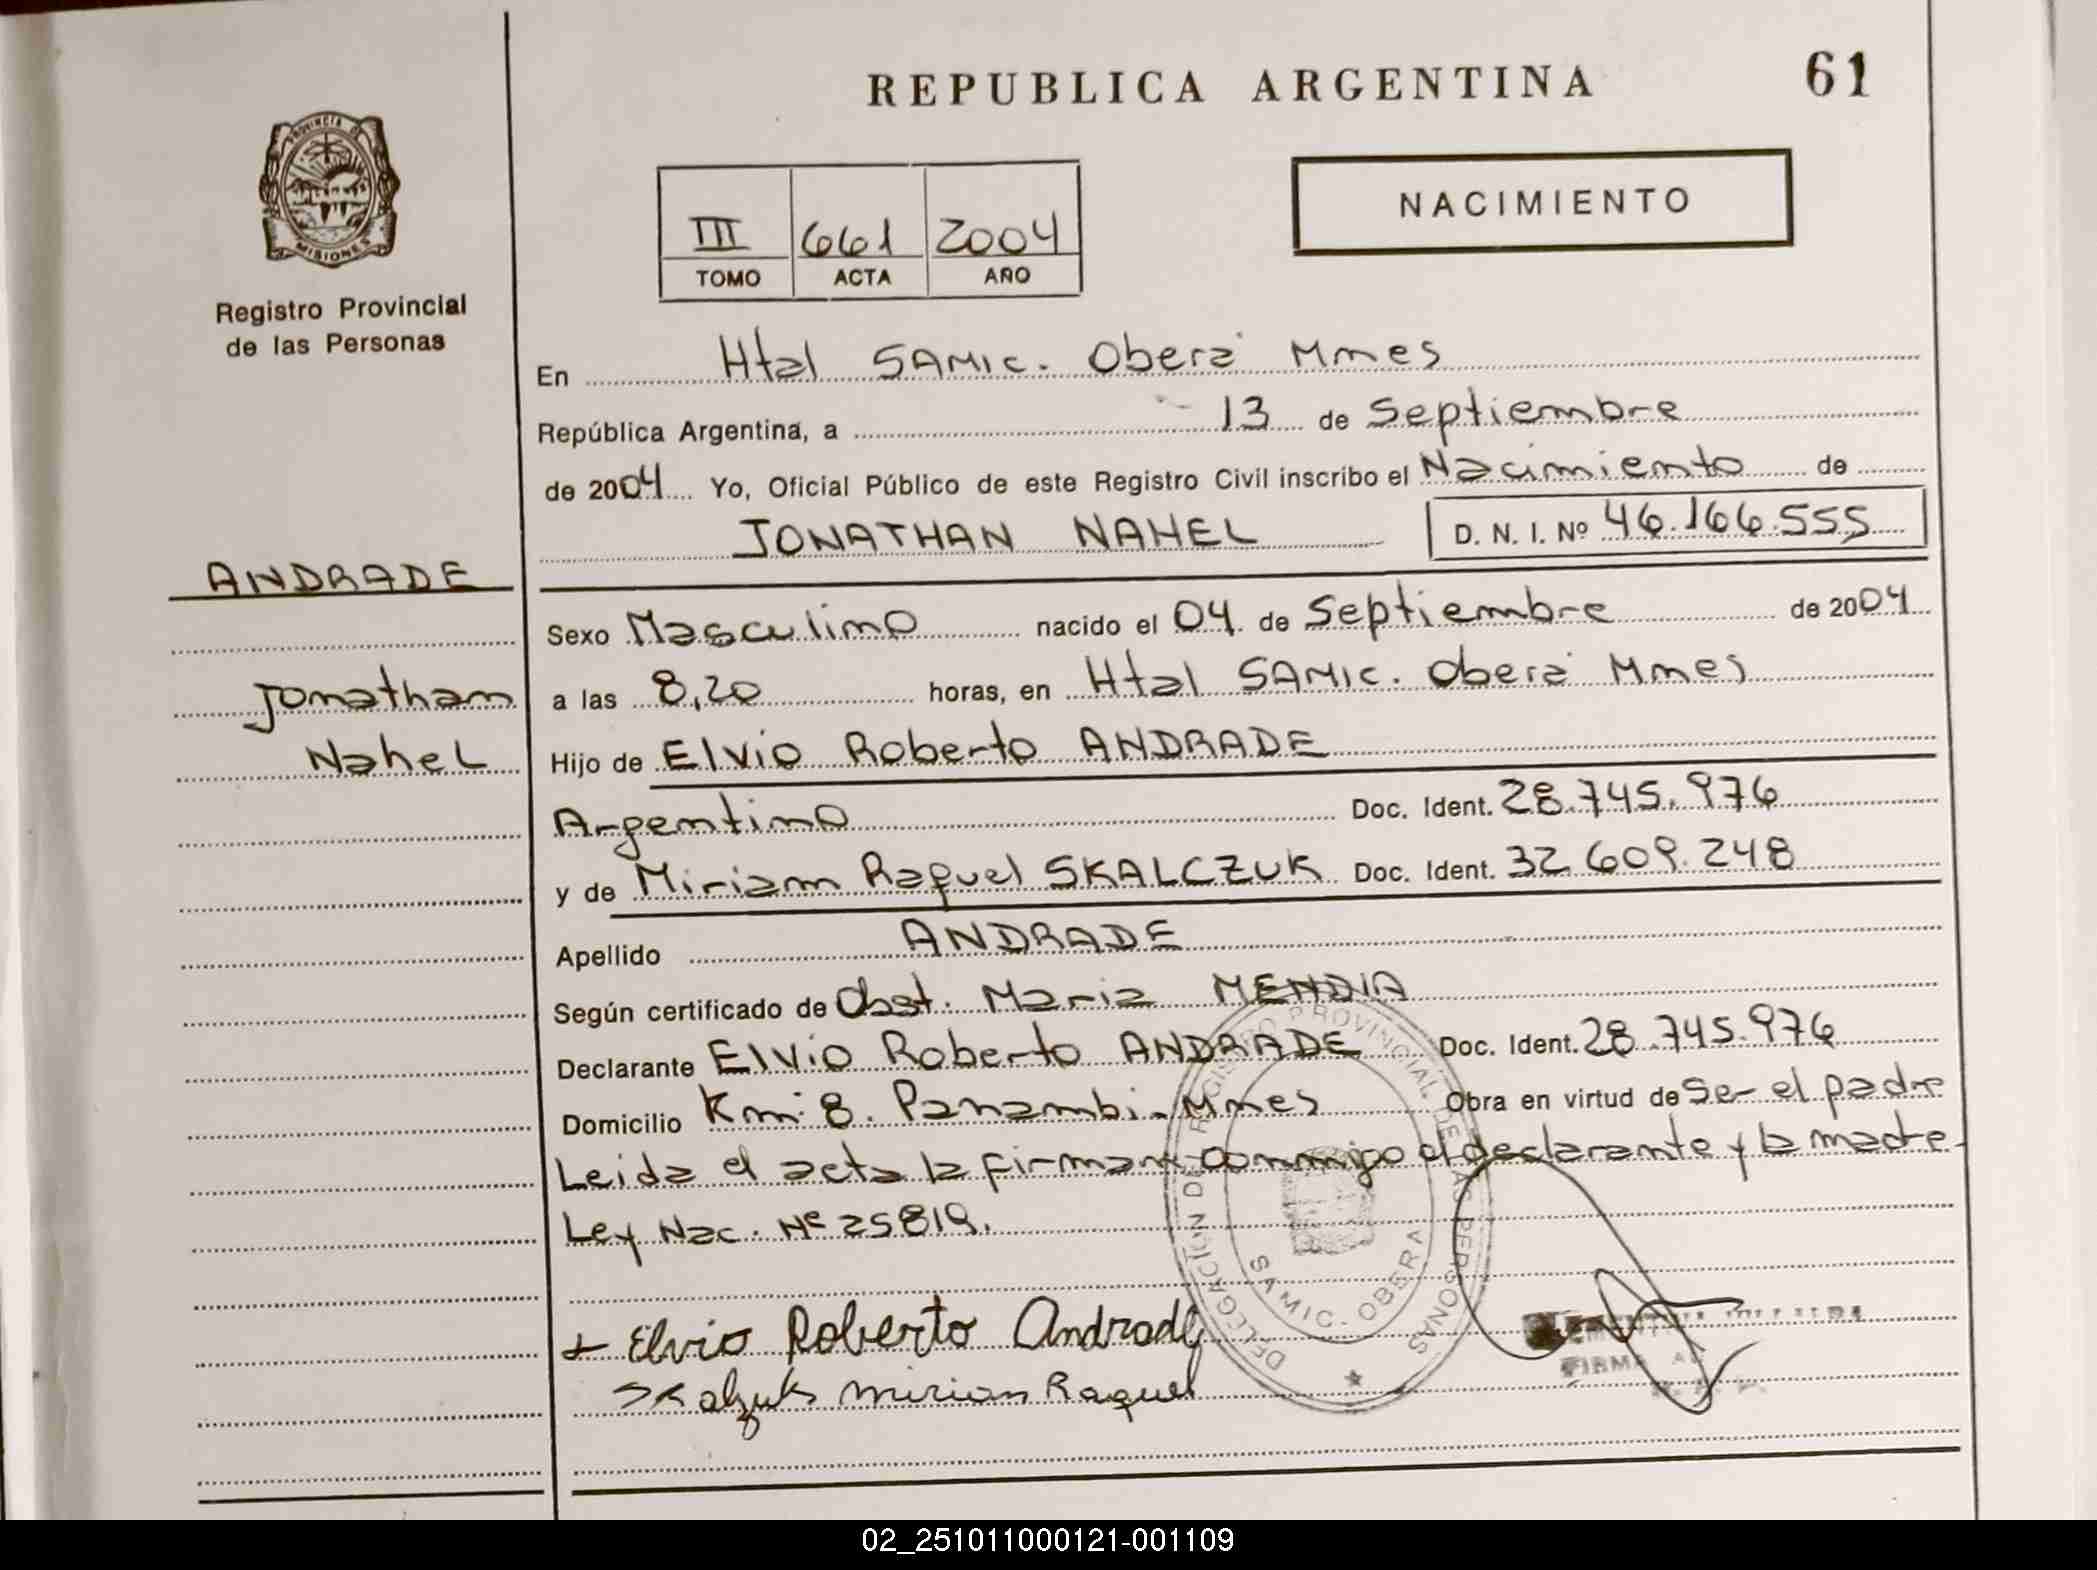 REPUBLICA ARGENTINA
61
PROVINCIA DE
MISIONES
Registro Provincial
de las Personas
NACIMIENTO
III 661 2004
TOMO ACTA AÑO
En Htal SAMIC. Oberá Mnes
República Argentina, a 13 de Septiembre
de 2004 Yo, Oficial Público de este Registro Civil inscribo el Nacimiento de
JONATHAN NAHEL D. N. I. Nº 46.166.555
ANDRADE
Jonathan
Nahel
Sexo Masculino nacido el 04 de Septiembre de 2004
a las 8,20 horas, en Htal SAMIC. Oberá Mnes
Hijo de Elvio Roberto ANDRADE
Argentino Doc. Ident. 28.745.976
y de Miriam Raquel SKALCZUK Doc. Ident. 32.609.248
Apellido ANDRADE
Según certificado de Obst. Maria MENDIA
Declarante Elvio Roberto ANDRADE Doc. Ident. 28.745.976
Domicilio Km 8. Panambi - Mnes Obra en virtud de Ser el padre
Leida el acta la firman conmigo el declarante y la madre
Ley Nac. Nº 25819.
DELEGACION DE REGISTRO PROVINCIAL DE LAS PERSONAS
SAMIC - OBERA
Elvio Roberto Andrade
Miriam Raquel
FIRMA
02_251011000121-001109